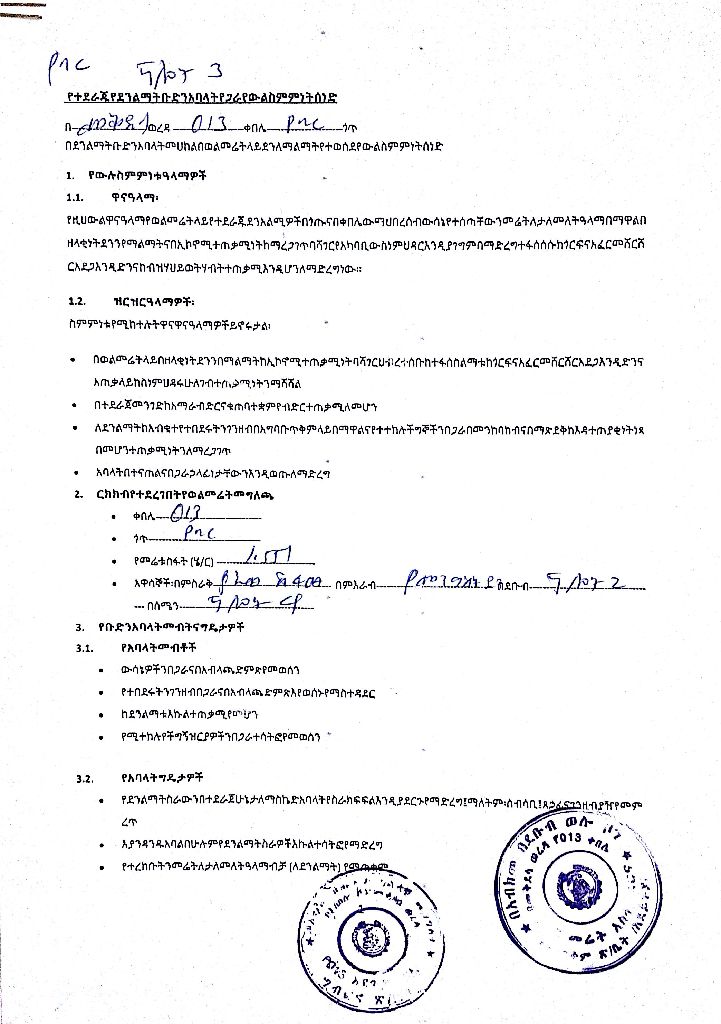 የጎር
ሻ/ሎት 3
የተደራጁየደንልማትቡድንአባላትየጋራየውልስምምነትሰነድ
በ መቅደላ ወረዳ 013 ቀበሌ የጎር ጎጥ
በደንልማትቡድንአባላትመሀከልበወልመሬትላይደንለማልማትየተወሰደየውልስምምነትሰነድ
1. የውሉስምምነቱዓላማዎች
1.1. ዋናዓላማ፡
የዚህውልዋናዓላማየወልመሬትላይየተደራጁደንአልሚዎችበጎጡናበቀበሌውማህበረሰብውሳኔየተሰጣቸውንመሬትለታለመለትዓላማበማዋልበ
ዘላቂነትደንንየማልማትናበኢኮኖሚተጠቃሚነትከማረጋገጥባሻገርየአካባቢውስነምህዳርእንዲያገግምበማድረግተፋሰሱከጎርፍናአፈርመሸርሸ
ርአደጋእንዲድንናከብዝሃህይወትሃብትተጠቃሚእንዲሆንለማድረግነው።
1.2. ዝርዝርዓላማዎች፡
ስምምነቱየሚከተሉትዋናዋናዓላማዎችይኖሩታል፡
• በወልመሬትላይበዘላቂነትደንንበማልማትከኢኮኖሚተጠቃሚነትባሻገርህብረተሰቡከተፋሰስልማቱከጎርፍናአፈርመሸርሸርአደጋእንዲድንና
አጠቃላይከስነምህዳሩሁለገብተጠቃሚነትንማሻሻል
• በተደራጀመንገድከአማራብድርናቁጠባተቋምየብድርተጠቃሚለመሆን
• ለደንልማትከአብቁተየተበደሩትንገንዘብበአግባቡጥቅምላይበማዋልናየተተከሉችግኞችንበጋራበመንከባከብናበማጽደቅከእዳተጠያቂነትነጻ
በመሆንተጠቃሚነትንለማረጋገጥ
• አባላትበተናጠልናበጋራኃላፊነታቸውንእንዲወጡለማድረግ
2. ርክክብየተደረገበትየወልመሬትመግለጫ
• ቀበሌ 013
• ጎጥ የጎር
• የመሬቱስፋት (ሄ/ር)
• አዋሳኞች፡በምስራቅ በምእራብ በደቡብ ሻ/ሎት 2
በሰሜን ሻ/ሎት
3. የቡድንአባላትመብትናግዴታዎች
3.1. የአባላትመብቶች
• ውሳኔዎችንበጋራናበአብላጫድምጽየመወሰን
• የተበደሩትንገንዘብበጋራናበአብላጫድምጽእየወሰኑየማስተዳደር
• ከደንልማቱእኩልተጠቃሚየመሆን
• የሚተከሉየችግኝዝርያዎችንበጋራተሳትፎየመወሰን
3.2. የአባላትግዴታዎች
• የደንልማትስራውንበተደራጀሁኔታለማስኬድአባላትየስራክፍፍልእንዲያደርጉየማድረግ፤ማለትም፡ሰብሳቢ፤ጸኃፊናገንዘብያዥየመም
ረጥ
• እያንዳንዱአባልበሁሉምየደንልማትስራዎችእኩልተሳትፎየማድረግ
• የተረከቡትንመሬትለታለመለትዓላማብቻ (ለደንልማት) የመጠቀም
በአብክመ በደቡብ ወሎ ዞን
በመቅደላ ወረዳ የ013 ቀበሌ
መሬት